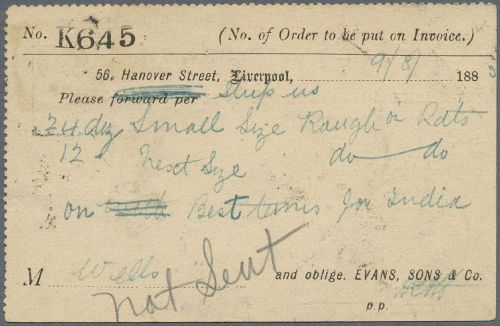 No. K645 (No. of Order to be put on Invoice.)
56, Hanover Street, Liverpool, 9/8/ 188
Please forward per Ship us
24 dz Small Size Rough on Rats
12 Next Size do do
on Best terms for India
M Wells and oblige, EVANS, SONS & Co.
not Sent p.p.